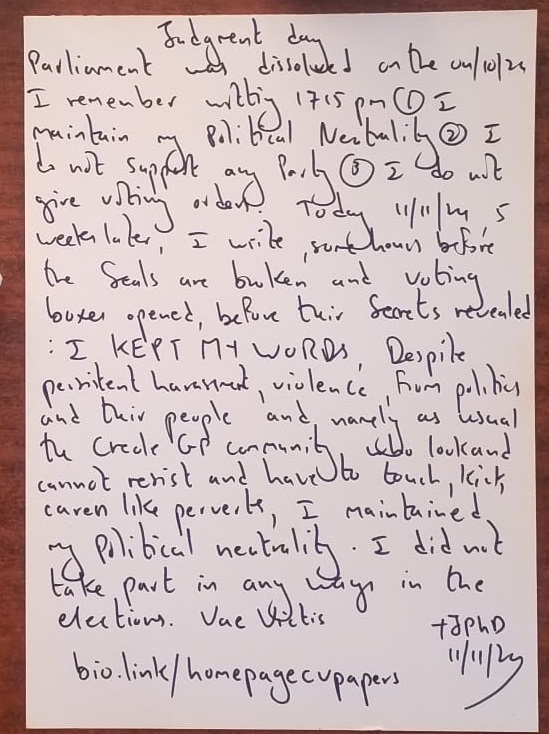 Judgment day
Parliament was dissolved on the 04/10/24
I remember writtig 1715 pm ① I
maintain my Political Neutrality ② I
do not support any Party ③ I do not
give voting orders. Today 11/11/24, 5
weeks later, I write, some hours before
the Seals are broken and voting
boxes opened, before their Secrets revealed
: I KEPT MY WORDS, Despite
persitent harassment, violence, from politics
and their people and, namely as usual
the Creole GP community who look and
cannot resist and have to touch, kick,
caren like perverts, I maintained
my political neutrality. I did not
take part in any ways in the
elections. Vae Victis
+JPhD
11/11/24
bio.link/homepagecvpapers